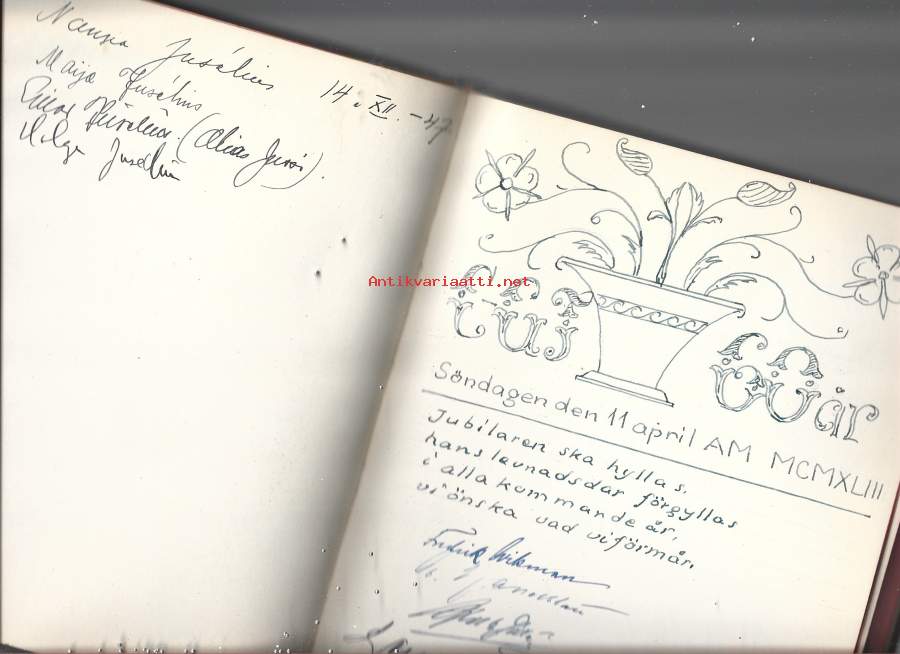 Nanna Jusélius 14. XII. -47.
Maija Jusélius
Jusélius. (Alias Jusoi).
Helge Jusélius
Antikvariaatti.net
60 år
Söndagen den 11 april AM MCMXLIII
Jubilaren ska hyllas,
hans levnadsdar förgyllas
i alla kommande år,
vi önska vad vi förmår.
Fredrik Wikman